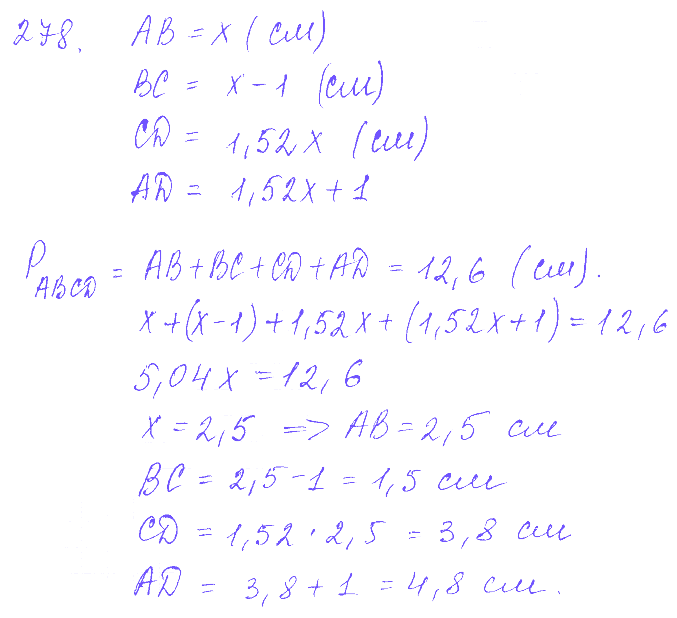 278. AB = x (см)
BC = x - 1 (см)
CD = 1,52x (см)
AD = 1,52x + 1
P ABCD = AB + BC + CD + AD = 12,6 (см).
x + (x - 1) + 1,52x + (1,52x + 1) = 12,6
5,04x = 12,6
x = 2,5 => AB = 2,5 см
BC = 2,5 - 1 = 1,5 см
CD = 1,52 · 2,5 = 3,8 см
AD = 3,8 + 1 = 4,8 см.